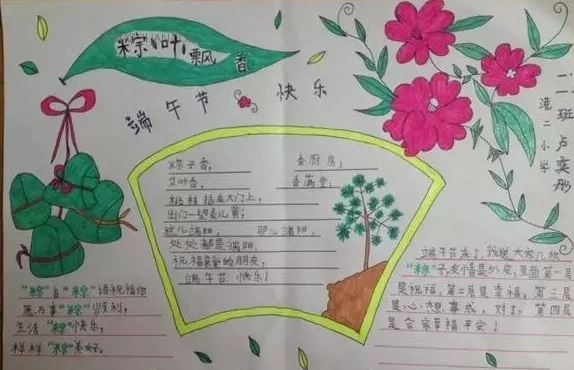 粽叶飘香
端午节 快乐
二.二班 卢奕彤
港二小学
粽子香, 香厨房;
艾叶香, 香满堂;
桃枝插在大门上,
出门一望麦儿黄;
这儿端阳, 那儿端阳,
处处都是端阳.
祝福亲爱的朋友,
端午节 快乐!
"粽"自"粽"语祝福你
愿万事"粽"顺利,
生活"粽"快乐,
样样"粽"美好.
端午节来了,我送大家几款
"粽"子,友情是外皮,里面第一层
是祝福,第二层是幸福,第三层
是心想事成,对了,第四层
是合家幸福平安!